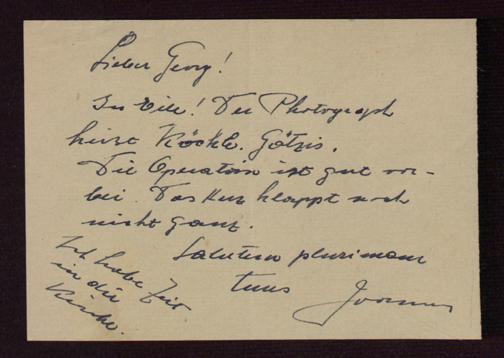 Lieber Georg!
In Eile! Der Photograph
heisst Köchle. Götzis.
Die Operation ist gut vor-
bei. Das Herz klappt noch
nicht ganz.
Salutem plurimam
tuus
Ich habe Zeit
in die
Kirche.